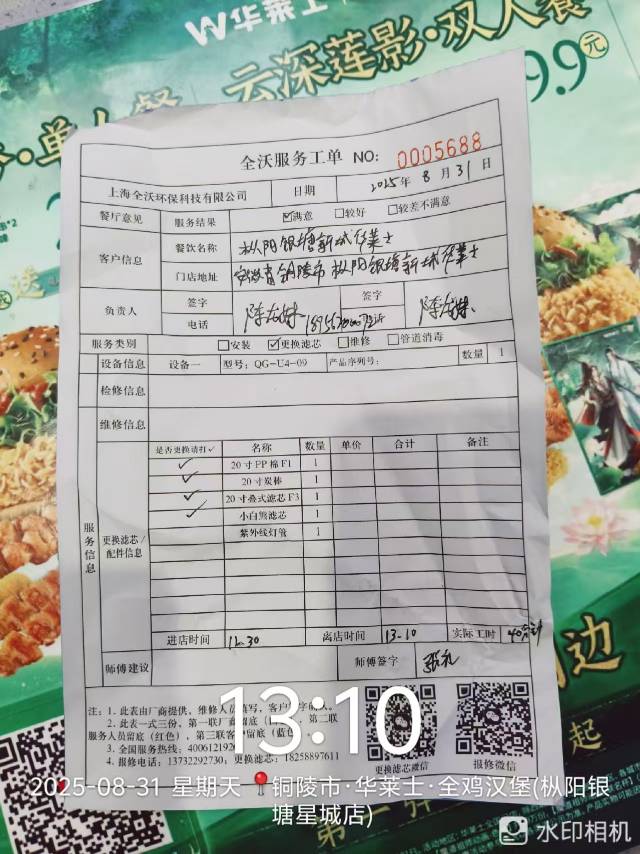 华莱士
云深莲影·双人餐
9.9元
全沃服务工单 NO: 0005688
上海全沃环保科技有限公司 日期 2025年8月31日
餐厅意见 服务结果 ☑满意 □较好 □较差不满意
客户信息 餐饮名称 枞阳银塘新城华莱士
门店地址 安徽省铜陵市枞阳银塘新城华莱士
负责人 签字 签字
电话
服务类别 □安装 ☑更换滤芯 □维修 □管道消毒
设备信息 设备一 型号: QG-U4-09 产品序列号: 数量 1
检修信息
维修信息
服务信息
更换滤芯/配件信息
是否更换请打✓ 名称 数量 单价 合计 备注
✓ 20寸PP棉F1 1
✓ 20寸炭棒 1
✓ 20寸叠式滤芯F3 1
✓ 小白熊滤芯 1
紫外线灯管 1
进店时间 离店时间 13-10 实际工时 40分计
师傅建议 师傅签字
注: 1. 此表由厂商提供, 维修人员填写, 客户
2. 此表一式三份, 第一联厂商留底 第二联
服务人员留底(红色), 第三联客户留底(蓝色
3. 全国服务热线: 4006121920
4. 报修电话: 13732292730; 更换滤芯: 18258897611
更换滤芯微信 报修微信
13:10
2025-08-31 星期天 铜陵市·华莱士·全鸡汉堡(枞阳银
塘星城店)
水印相机